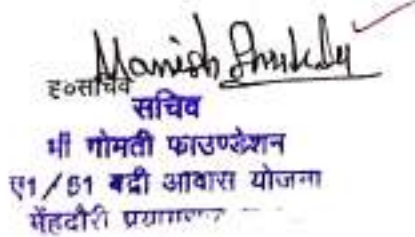 Manish Shukla
ह०सचिव
सचिव
श्री गोमती फाउण्डेशन
ए1/51 बद्री आवास योजना
मेंहदौरी